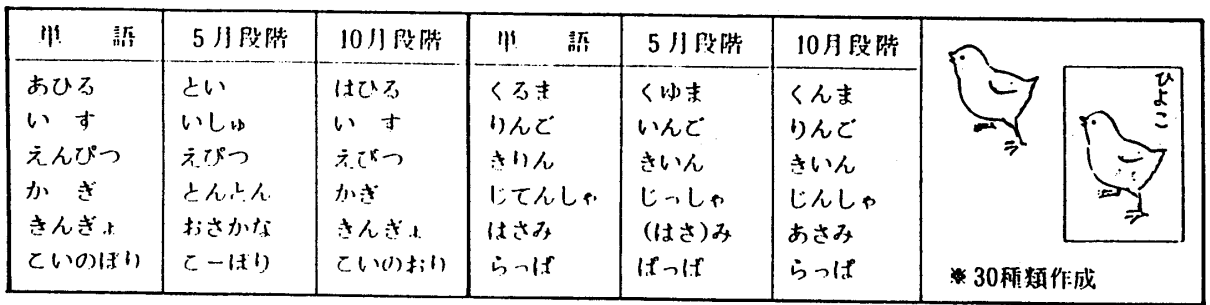 単語 5月段階 10月段階 単語 5月段階 10月段階
あひる とい はひる くるま くゆま くんま
いす いしゅ いす りんご いんご りんご
えんぴつ えぴつ えぴつ きりん きいん きいん
かぎ とんとん かぎ じてんしゃ じっしゃ じんしゃ
きんぎょ おさかな きんぎょ はさみ (はさ)み あさみ
こいのぼり こーぼり こいのおり らっぱ ぱっぱ らっぱ
ひよこ
※30種類作成